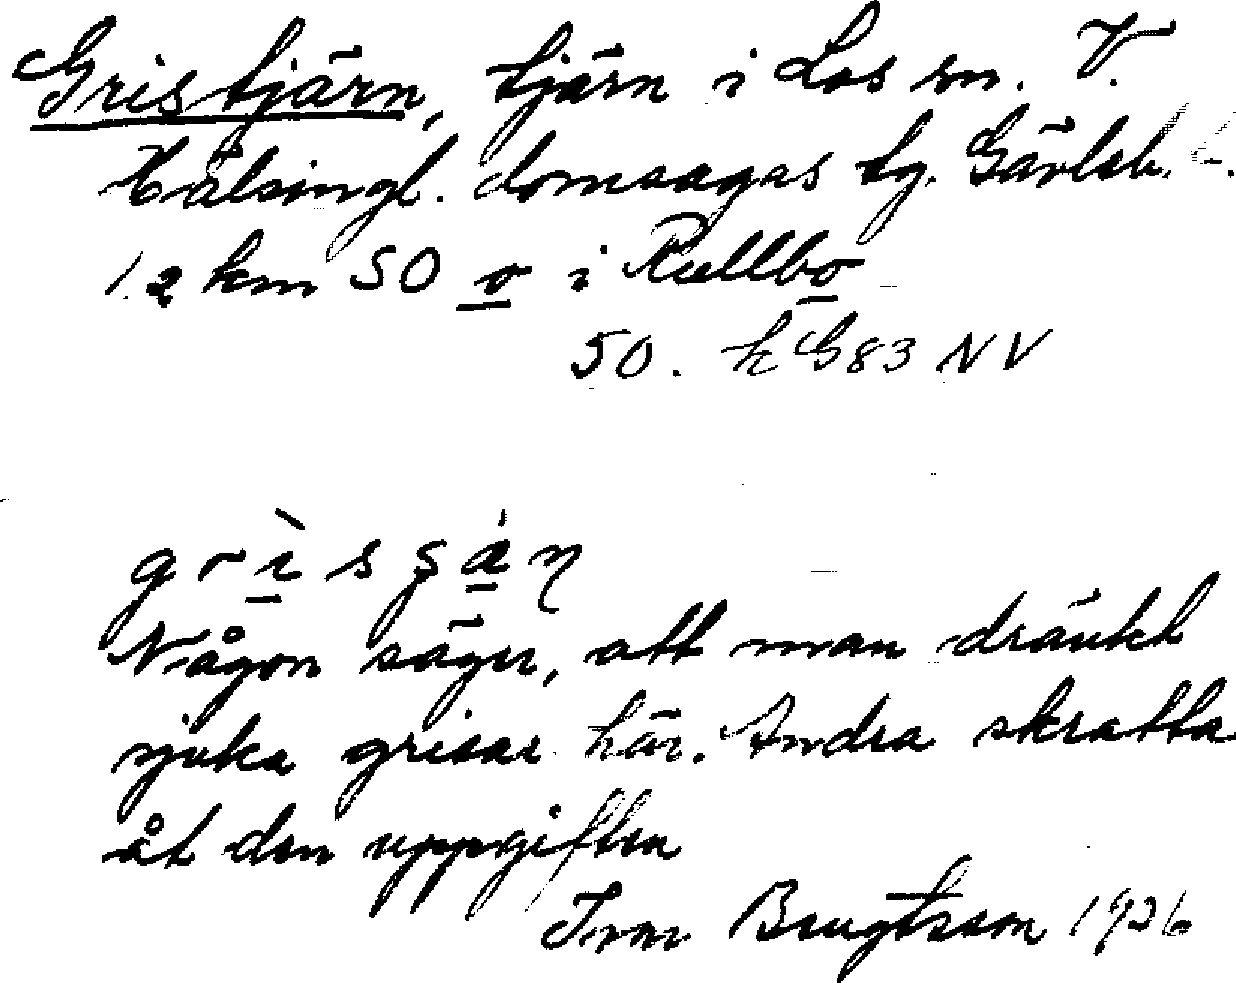 Gristjärn, tjärn i Los sn. V.
Hälsingl. domsagas tg. Gävleb. l.
1.2 km SO o i Rullbo
50. k G83 NV
grìsşáη
Någon säger, att man dränkt
sjuka grisar här. Andra skratta
åt den uppgiften
Ivar Bengtsson 1926